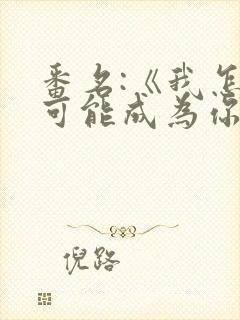 番名:《我怎
可能成为你
倪路